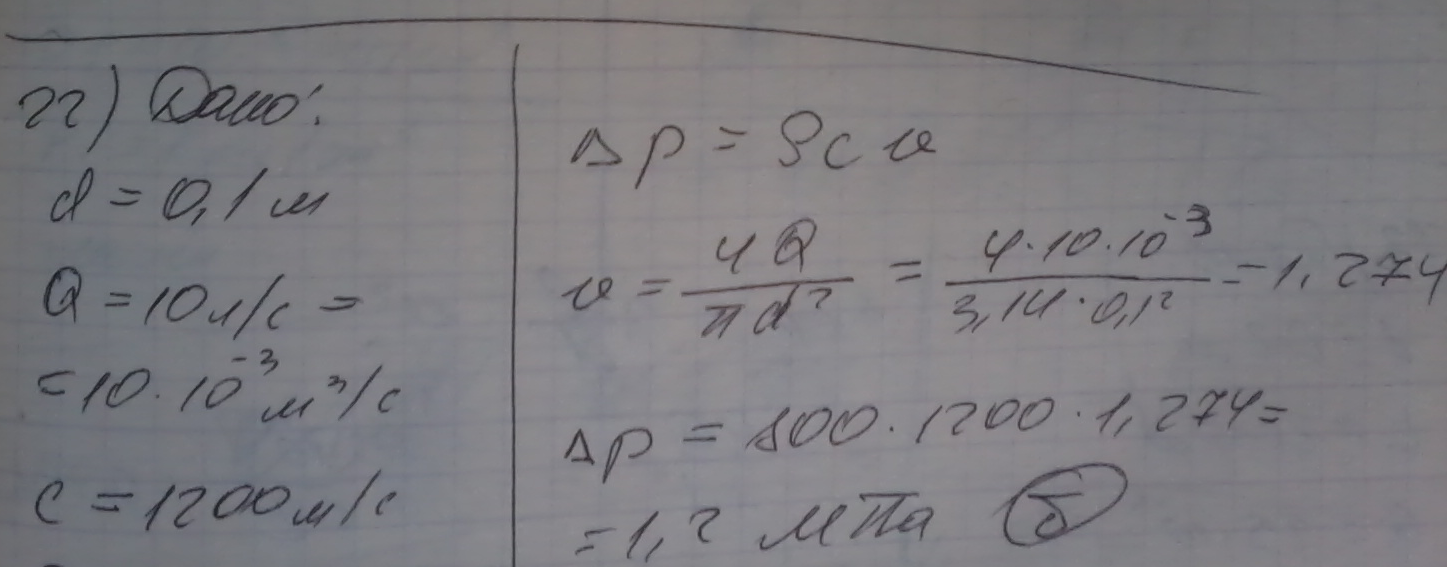 22) Дано:
d = 0,1 м
Q = 10 л/с =
= 10 · 10⁻³ м³/с
c = 1200 м/с
Δp = ρcv
v = 4Q / πd² = 4·10·10⁻³ / 3,14·0,1² = 1,274
Δp = 800 · 1200 · 1,274 =
= 1,2 МПа б